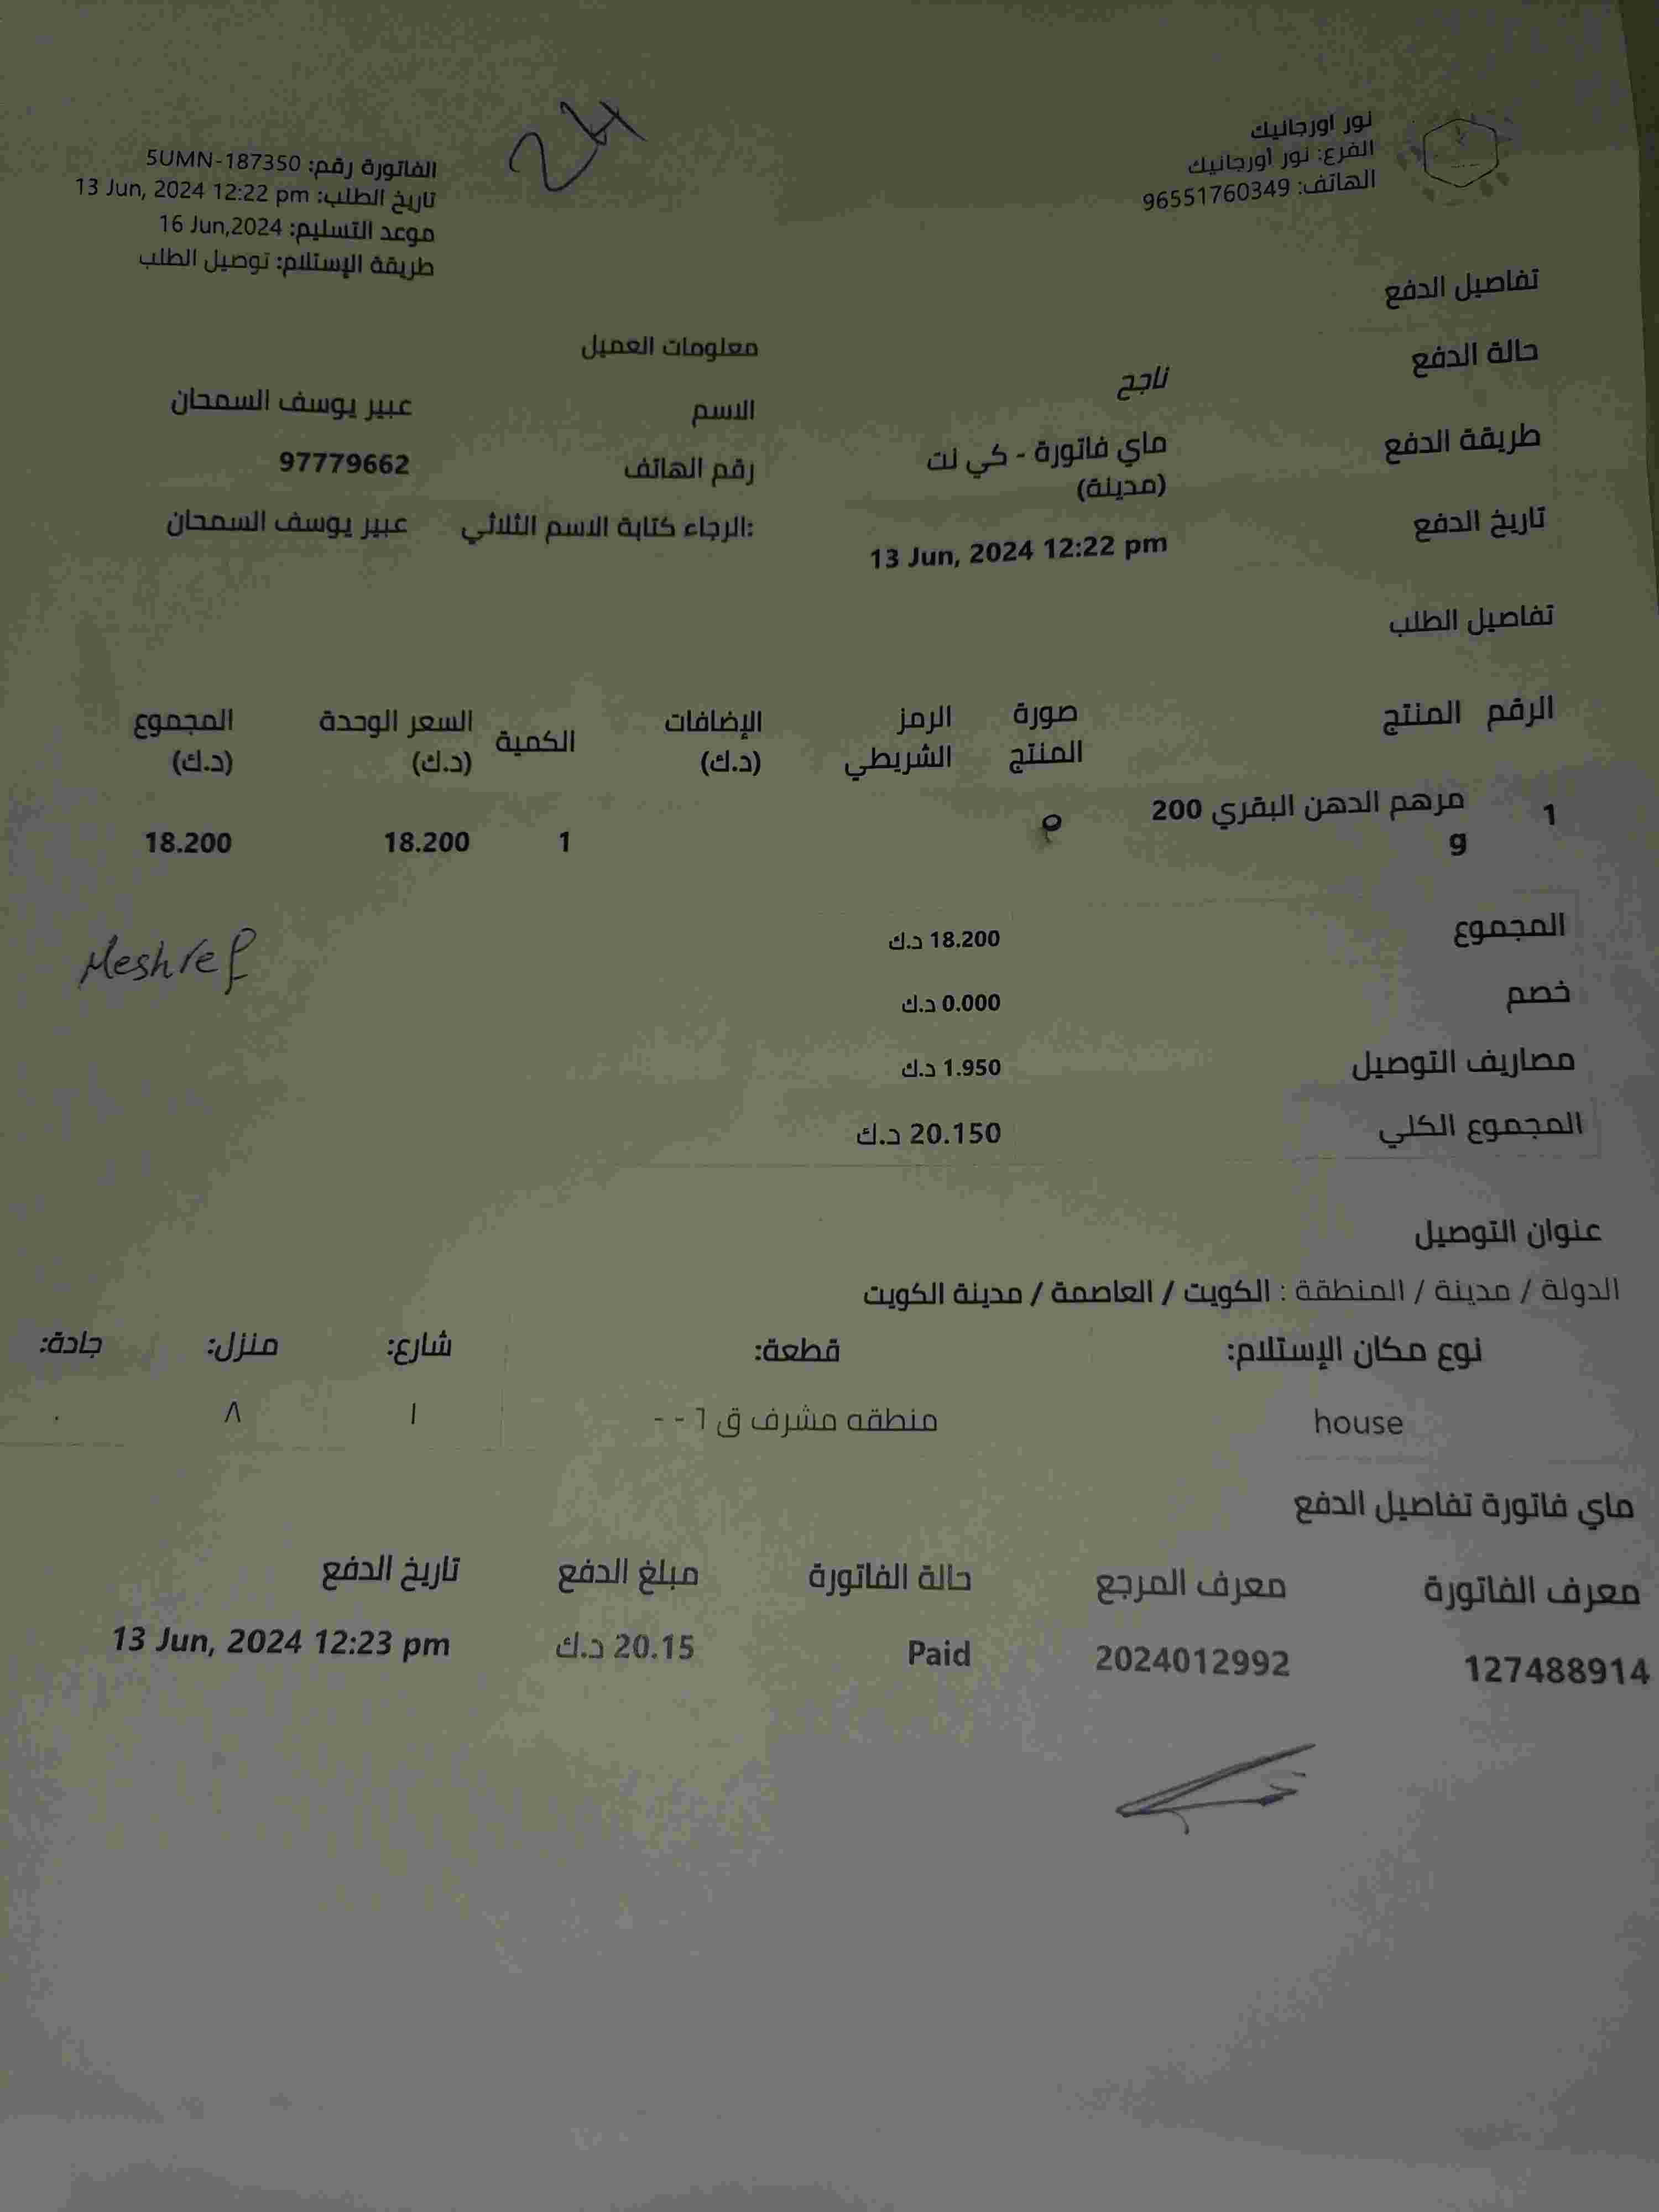 نور اورجانيك
الفرع: نور أورجانيك
الهاتف: 96551760349
24
الفاتورة رقم: 5UMN-187350
تاريخ الطلب: 13 Jun, 2024 12:22 pm
موعد التسليم: 16 Jun,2024
طريقة الإستلام: توصيل الطلب
تفاصيل الدفع
حالة الدفع ناجح
طريقة الدفع ماي فاتورة - كي نت
(مدينة)
تاريخ الدفع 13 Jun, 2024 12:22 pm
معلومات العميل
الاسم عبير يوسف السمحان
رقم الهاتف 97779662
الرجاء كتابة الاسم الثلاثي: عبير يوسف السمحان
تفاصيل الطلب
الرقم المنتج صورة المنتج الرمز الشريطي الإضافات (د.ك) الكمية السعر الوحدة (د.ك) المجموع (د.ك)
1 مرهم الدهن البقري 200 g 1 18.200 18.200
المجموع 18.200 د.ك
Meshref
خصم 0.000 د.ك
مصاريف التوصيل 1.950 د.ك
المجموع الكلي 20.150 د.ك
عنوان التوصيل
الدولة / مدينة / المنطقة : الكويت / العاصمة / مدينة الكويت
نوع مكان الإستلام: قطعة: شارع: منزل: جادة:
house منطقه مشرف ق ٦ - - ١ ٨ ٠
ماي فاتورة تفاصيل الدفع
معرف الفاتورة معرف المرجع حالة الفاتورة مبلغ الدفع تاريخ الدفع
127488914 2024012992 Paid 20.15 د.ك 13 Jun, 2024 12:23 pm